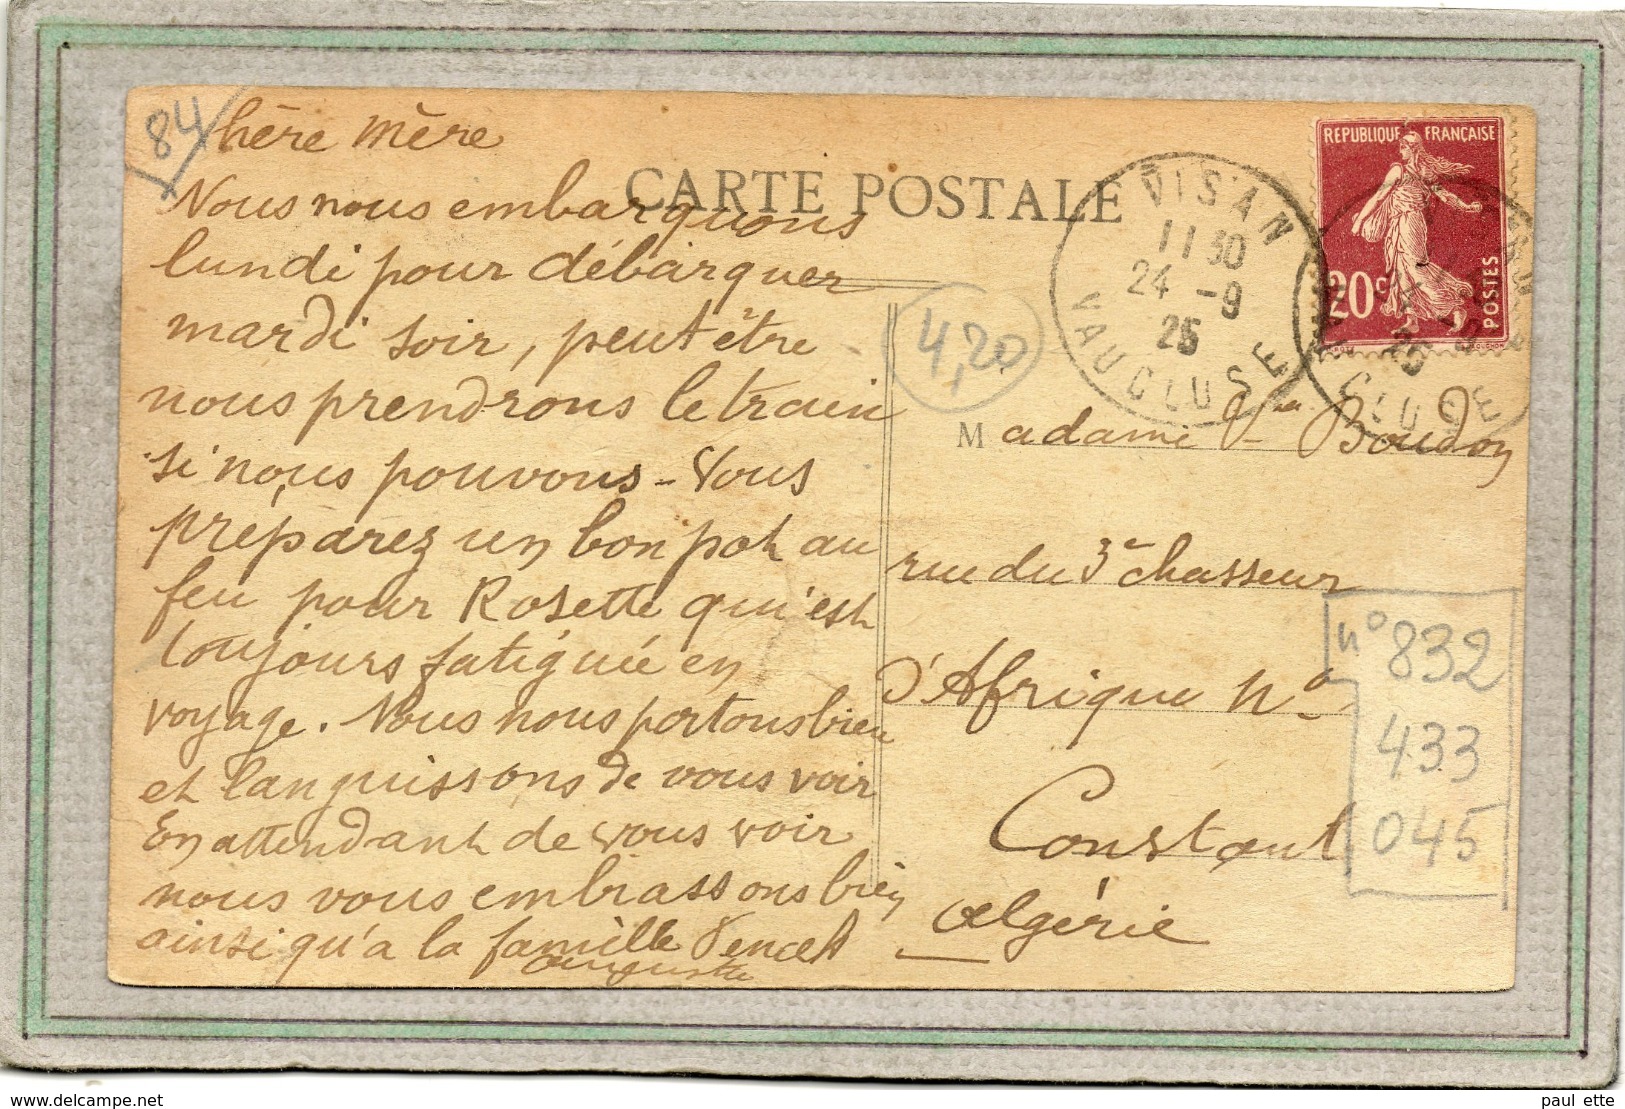 84
hère Mère
CARTE POSTALE
Nous nous embarquons
lundi pour débarquer
mardi soir, peut être
nous prendrons le train
si nous pouvons - Vous
préparez un bon pot au
feu pour Rosette qu'est
toujours fatiguée en
voyage. Nous nous portons bien
et languissons de vous voir
En attendant de vous voir
nous vous embrassons bien
ainsi qu'a la famille
Auguste
4,20
VISAN
11 30
24 -9
25
VAUCLUSE
REPUBLIQUE FRANÇAISE
20c
POSTES
Madame Vve Boudon
rue du 3e chasseur
d'Afrique No
Constant
Algérie
no 832
433
045
paul ette
delcampe.net